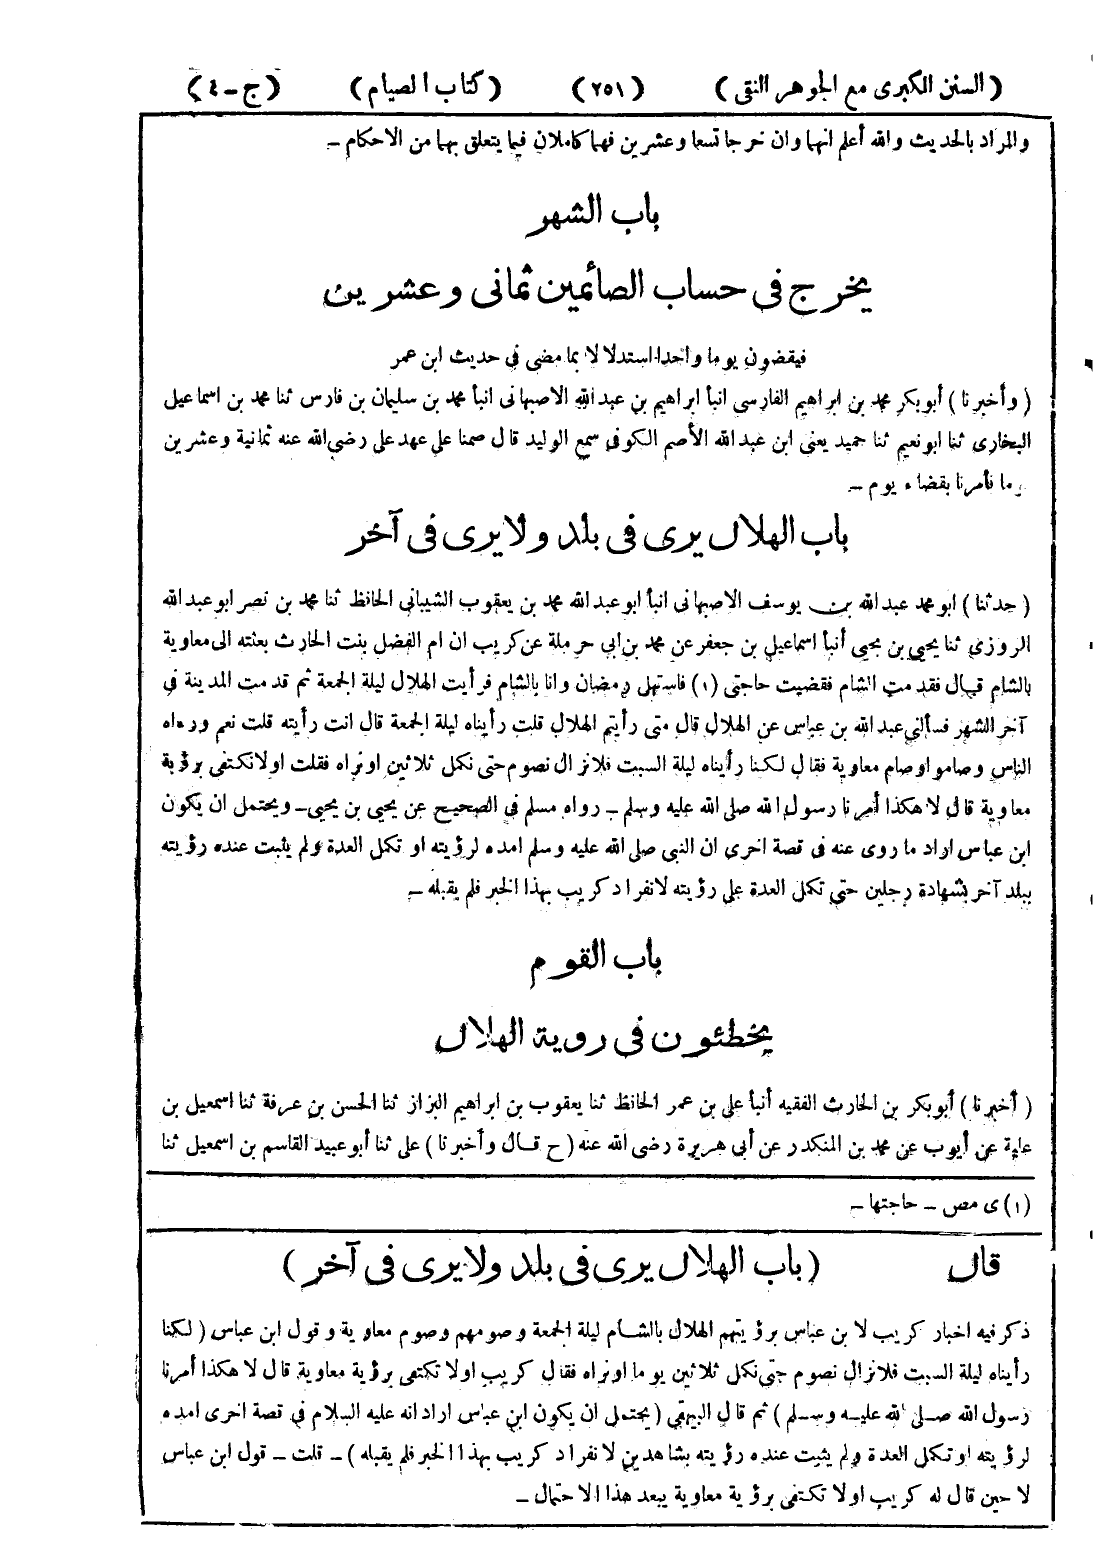 ( السنن الكبرى مع الجوهر النقى ) ( ٢٥١ ) ( كتاب الصيام ) ( ج - ٤ )
والمراد بالحديث والله أعلم انهما وان خرجا تسعا وعشرين فهما كاملان فيما يتعلق بهما من الاحكام -
باب الشهر
يخرج فى حساب الصائمين ثمانى وعشرين
فيقضون يوما واحدا استدلالا بما مضى فى حديث ابن عمر
( وأخبرنا ) أبو بكر محمد بن ابراهيم الفارسى انبأ ابراهيم بن عبد الله الاصبهانى انبأ محمد بن سليمان بن فارس ثنا محمد بن اسماعيل
البخارى ثنا ابو نعيم ثنا حميد يعنى ابن عبد الله الأصم الكوفى سمع الوليد قال صمنا على عهد على رضى الله عنه ثمانية وعشرين
يوما فأمرنا بقضاء يوم -
باب الهلال يرى فى بلد ولا يرى فى آخر
( حدثنا ) ابو محمد عبد الله بن يوسف الاصبهانى انبأ ابو عبد الله محمد بن يعقوب الشيبانى الحافظ ثنا محمد بن نصر ابو عبد الله
المروزى ثنا يحيى بن يحيى أنبأ اسماعيل بن جعفر عن محمد بن ابى حرملة عن كريب ان ام الفضل بنت الحارث بعثته الى معاوية
بالشام قال فقدمت الشام فقضيت حاجتى (١) فاستهل رمضان وانا بالشام فرأيت الهلال ليلة الجمعة ثم قدمت المدينة فى
آخر الشهر فسألنى عبد الله بن عباس عن الهلال قال متى رأيتم الهلال قلت رأيناه ليلة الجمعة قال انت رأيته قلت نعم ورءاه
الناس وصاموا وصام معاوية فقال لكنا رأيناه ليلة السبت فلا نزال نصوم حتى نكمل ثلاثين او نراه فقلت اولا نكتفى برؤية
معاوية قال لا هكذا أمرنا رسول الله صلى الله عليه وسلم - رواه مسلم فى الصحيح عن يحيى بن يحيى - ويحتمل ان يكون
ابن عباس اراد ما روى عنه فى قصة اخرى ان النبى صلى الله عليه وسلم امده لرؤيته او تكمل العدة ولم يثبت عنده رؤيته
ببلد آخر بشهادة رجلين حتى تكمل العدة على رؤيته لانفراد كريب بهذا الخبر فلم يقبله -
باب القوم
يخطئون فى روية الهلال
( أخبرنا ) أبو بكر بن الحارث الفقيه أنبأ على بن عمر الحافظ ثنا يعقوب بن ابراهيم البزاز ثنا الحسن بن عرفة ثنا اسمعيل بن
علية عن أيوب عن محمد بن المنكدر عن أبى هريرة رضى الله عنه ( ح قال وأخبرنا ) على ثنا أبو عبيد القاسم بن اسمعيل ثنا
(١) ى مص - حاجتها -
قال ( باب الهلال يرى فى بلد ولا يرى فى آخر )
ذكر فيه اخبار كريب لابن عباس برؤيتهم الهلال بالشام ليلة الجمعة وصومهم وصوم معاوية وقول ابن عباس ( لكنا
رأيناه ليلة السبت فلا نزال نصوم حتى نكمل ثلاثين يوما او نراه فقال كريب اولا تكتفى برؤية معاوية قال لا هكذا أمرنا
رسول الله صلى الله عليه وسلم ) ثم قال البيهقى ( يحتمل ان يكون ابن عباس اراد انه عليه السلام فى قصة اخرى امده
لرؤيته او تكمل العدة ولم يثبت عنده رؤيته بشاهدين لانفراد كريب بهذا الخبر فلم يقبله ) - قلت - قول ابن عباس
لا حين قال له كريب اولا تكتفى برؤية معاوية يبعد هذا الاحتمال -